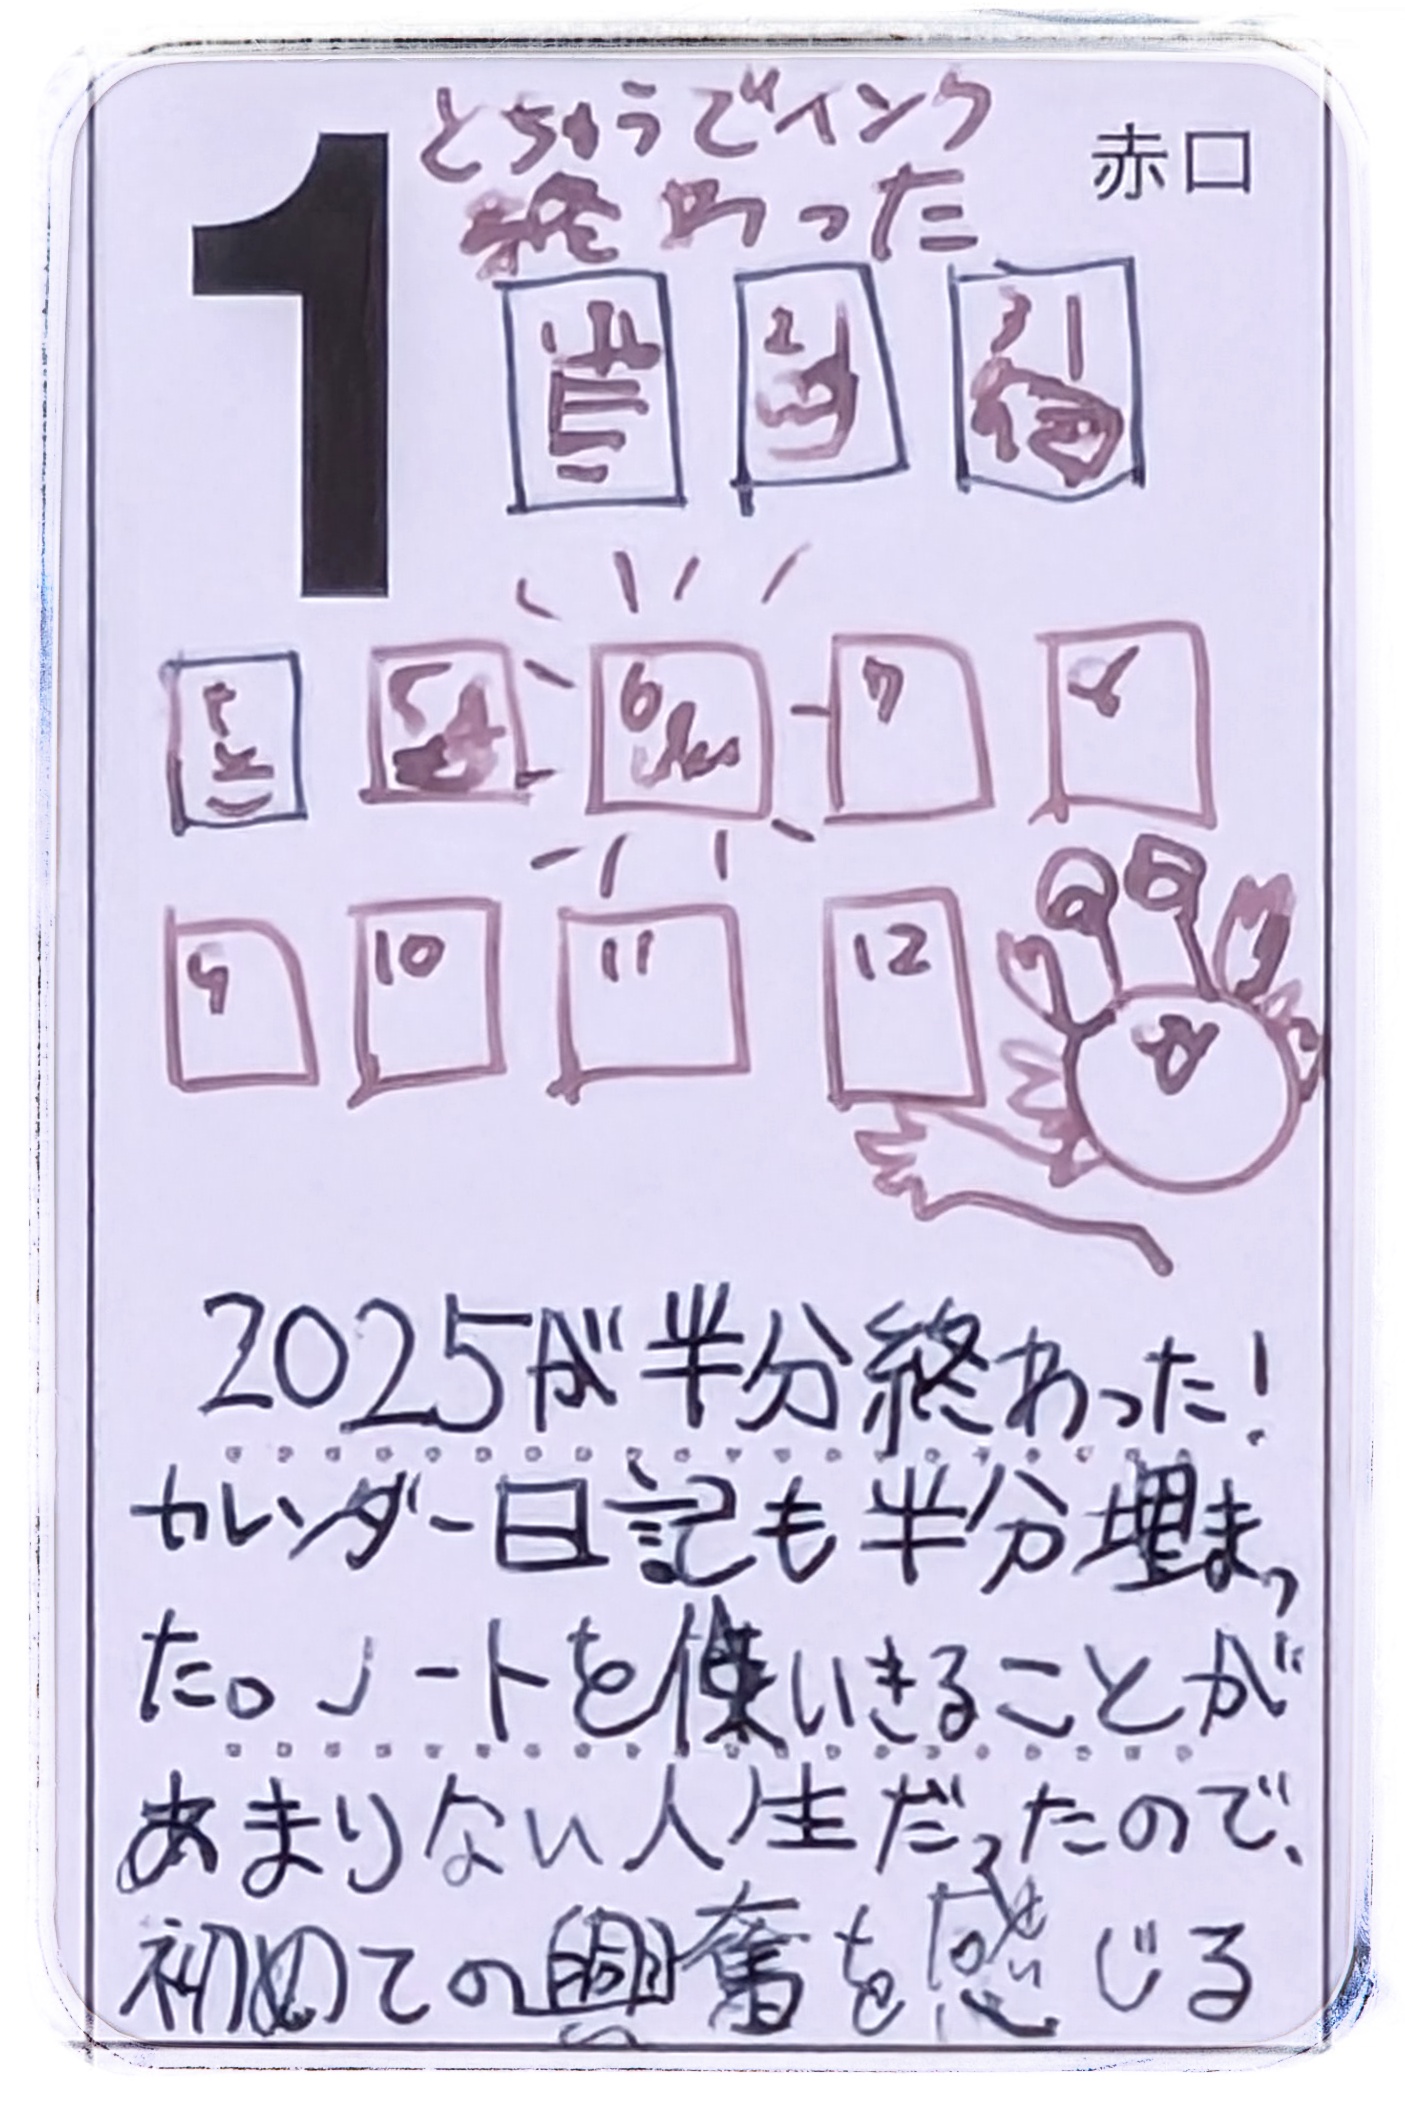 1
とちゅうでインク
赤口
終わった
1
2
3
5
6
7
8
9
10
11
12
2025が半分終わった!
カレンダー日記も半分埋まっ
た。ノートを使いきることが
あまりない人生だったので、
初めての興奮を感じる